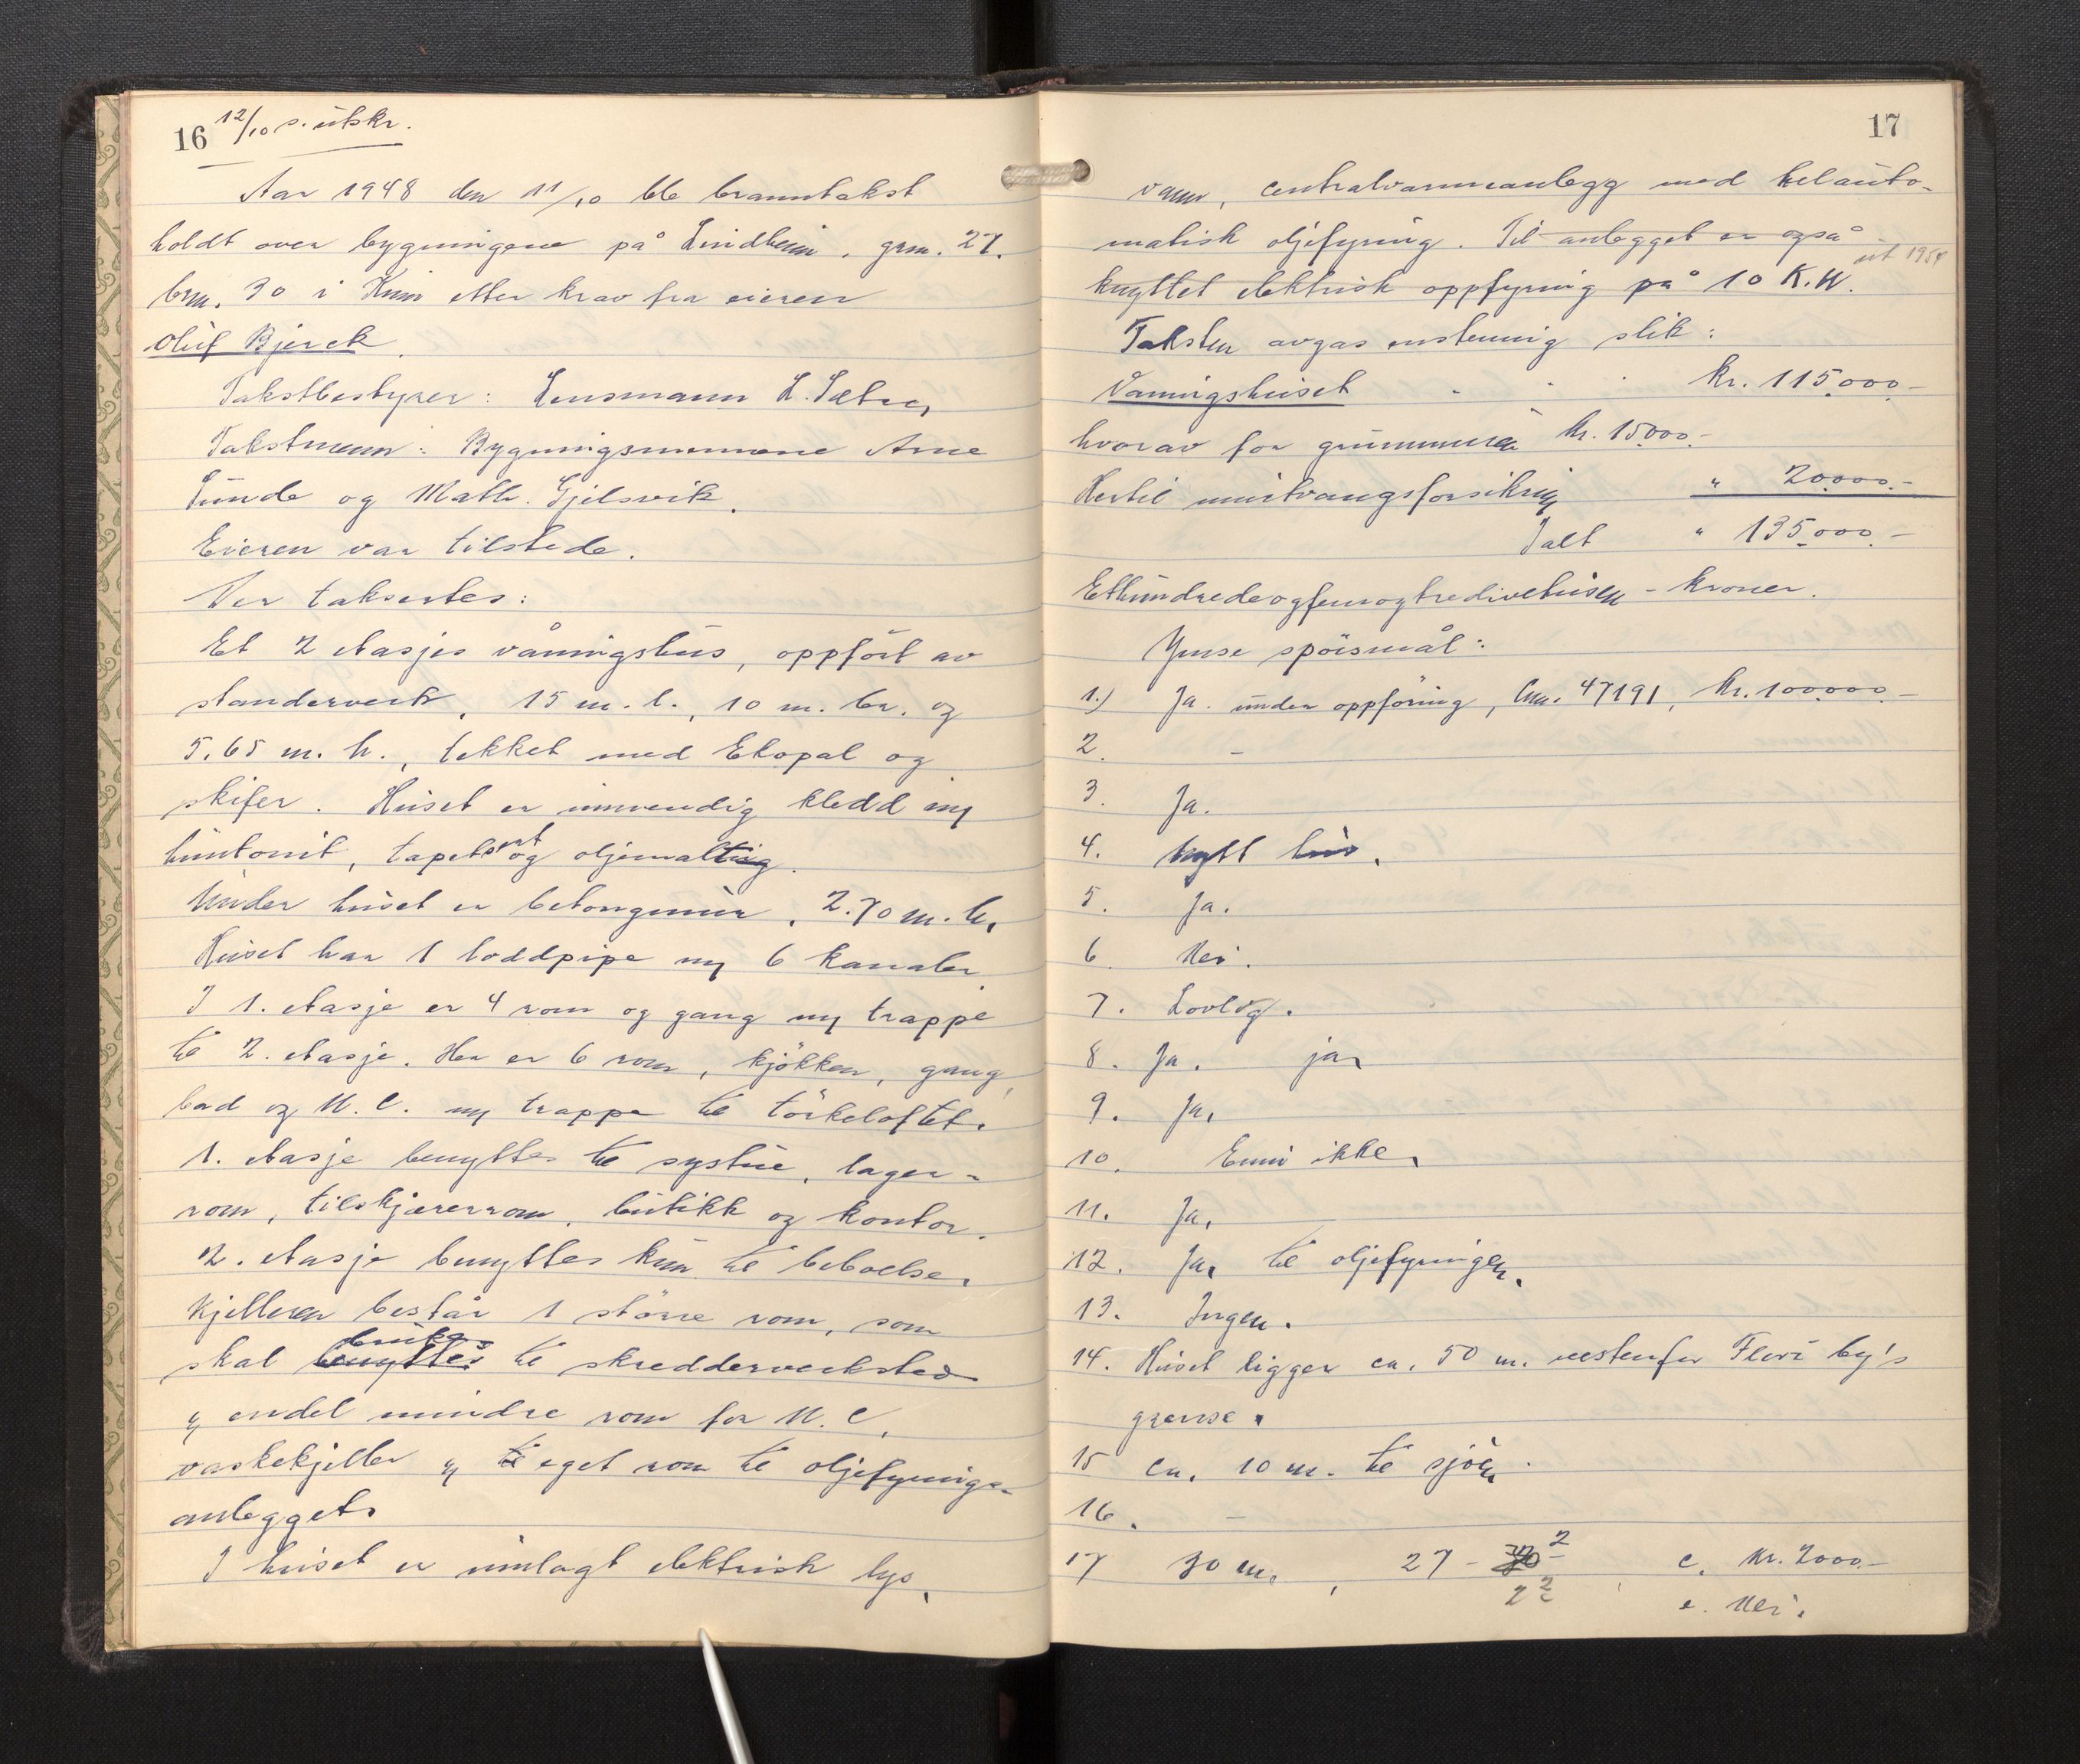 16 12/10 s. utskr.
Aar 1948 den 11/10 ble branntakst
holdt over bygningene på Lindheim, grm. 27.
brm. 30 i Kinn etter krav fra eieren
Oluf Bjerck.
Takstbestyrer: Lensmann L. Sætre,
Takstmenn: Bygningsmennene Arne
Sunde og Math. Gjelsvik.
Eieren var tilstede.
Der taksertes:
Et 2 etasjes våningshus, oppført av
standerverk, 15 m. l., 10 m. br. og
5.65 m. h., tekket med Etopal og
skifer. Huset er innvendig kledd m/
huntonit, tapetsert og oljemalt
Under huset er betongmur, 2.70 m. h.
Huset har 1 loddpipe m/ 6 kanaler.
I 1. etasje er 4 rom og gang m/ trappe
til 2. etasje. Her er 6 rom, kjøkken, gang,
bad og W. C. m/ trappe til tørkeloftet.
1. etasje benyttes til systue, lager-
rom, tilskjærerrom, butikk og kontor.
2. etasje benyttes kun til beboelse.
Kjelleren består 1 større rom, som
skal benyttes brukes til skredderverksted
og endel mindre rom for W. C.,
vaskekjeller og eget rom til oljefyrings-
anlegget.
I huset er innlagt elektrisk lys,
17
vann, centralvarmeanlegg med helauto-
matisk oljefyring. Til anlegget er også
ut 1954
knyttet elektrisk oppfyring på 10 K.W.
Taksten avgas enstemmig slik:
Vaaningshuset - - - kr. 115.000.-
hvorav for grunnmuren kr. 15.000.-
Hertil merkvangsforsikring " 20.000.-
Ialt " 135.000.-
Ethundredeogfemogtredivetusen - kroner.
Ymse spørsmål:
1.) Ja. under oppføring, bnr. 47191, kr. 100.000.-
2. -
3. Ja.
4. Nytt hus.
5. Ja.
6. Nei.
7. Lovlig.
8. Ja. ja,
9. Ja,
10. Ennu ikke,
11. Ja,
12. Ja, til oljefyringen.
13. Ingen.
14. Huset ligger ca. 50 m. vestenfor Florø by's
grense.
15 ca. 10 m. til sjøen.
16. -
17 30 m., 27 - 30 2 c. kr. 2000.-
22 e. Nei.